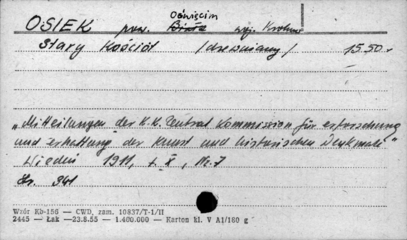 Oświęcim
OSIEK pow. Biała woj. Kraków
Stary Kościół /drewniany/ 15.50.-
„Mitteilungen der K.K. Central Kommission für erforschung
und erhaltung der Kunst und historischen Denkmale"
Wiedeń 1911, t. X, Nr. 7
Str. 341
Wzór Kb-156 — CWD, zam. 10837/T-1/II
2445 — Łak —23.8.55 — 1.400.000 — Karton kl. V A1/180 g